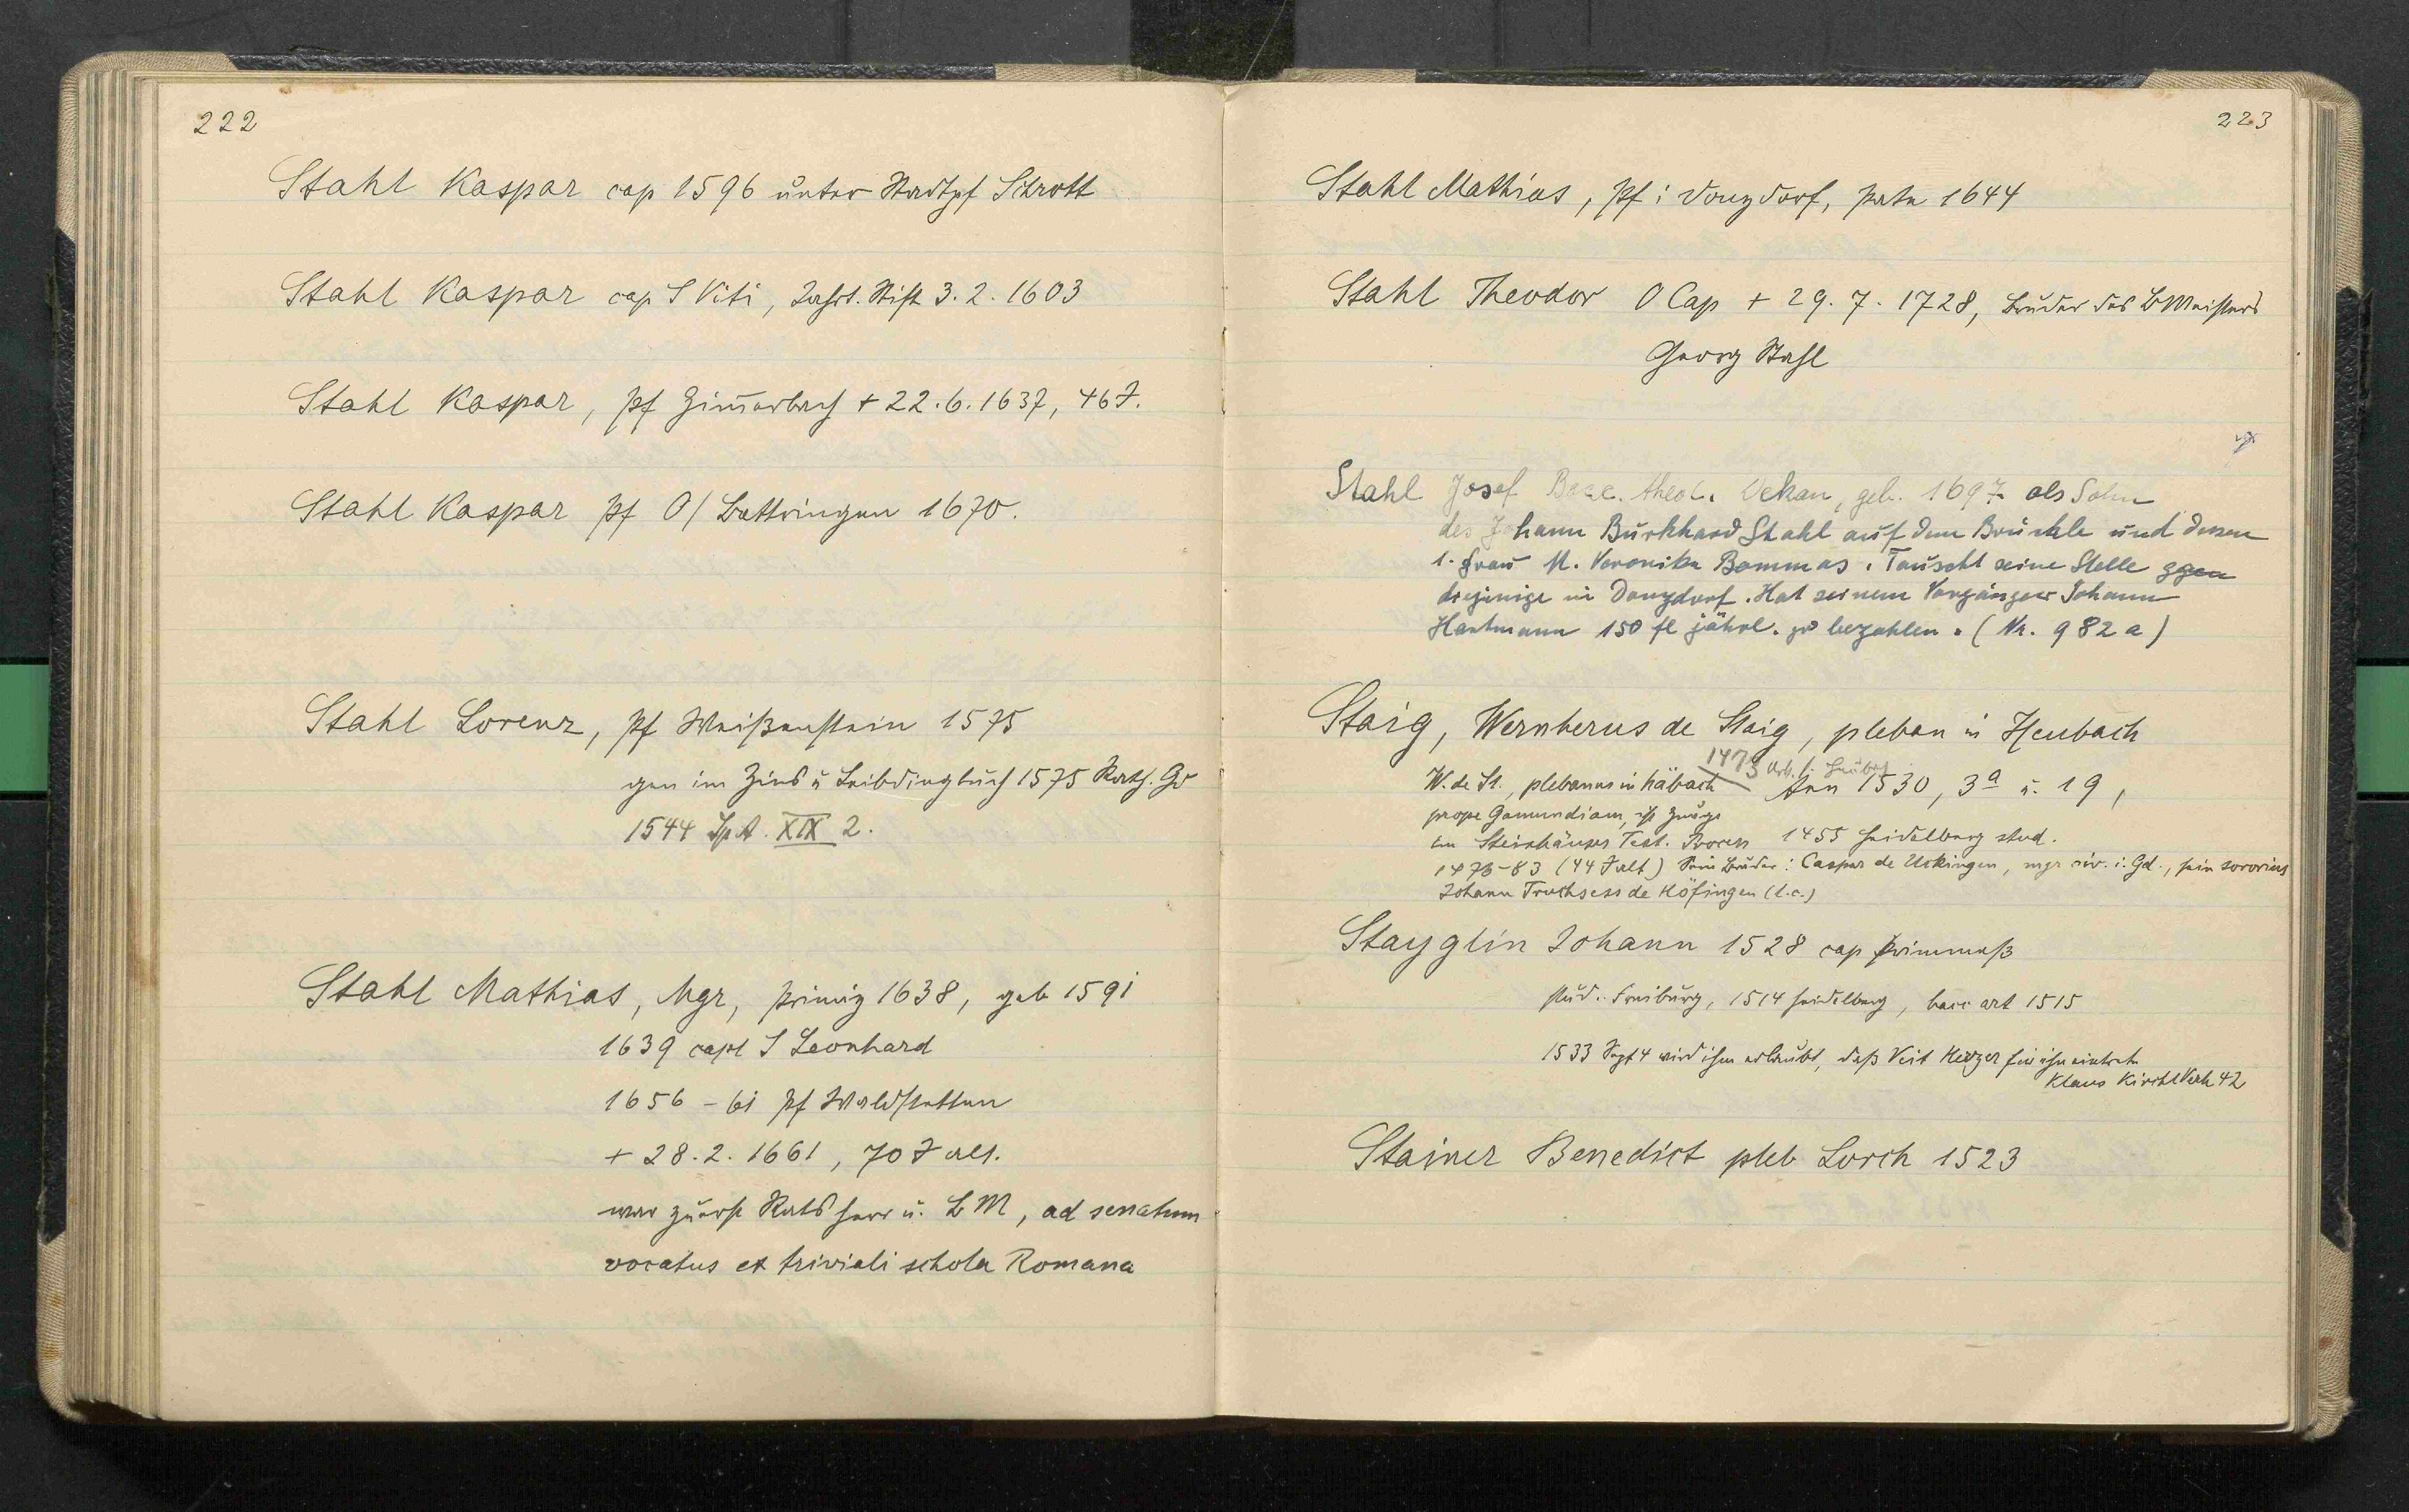 222
Stahl Kaspar cap 1596 unter Stadtpf Schrott
Stahl Kaspar cap S Viti, Jahrt. Stift 3. 2. 1603
Stahl Kaspar, Pf Zim̅erbach + 22. 6. 1637, 46 J.
Stahl Kaspar Pf O/Bettringen 1670.
Stahl Lorenz, Pf Weißenstein 1575
gen im Zins u Leibdingbuch 1575 Kath. Gd
1544 SpA. XIX 2.
Stahl Mathias, Mgr, Primiz 1638, geb 1591
1639 capl S Leonhard
1656 - 61 Pf Waldstetten
+ 28. 2. 1661, 70 J alt.
war zuerst Ratsherr u. BM, ad senatum
vocatus ex triviali schola Romana
223
Stahl Mathias, Pf i Donzdorf, 1644
Stahl Theodor O Cap + 29. 7. 1728, Bruder des BMeisters
Georg Stahl
Stahl Josef Bacc. theol. Dekan, geb. 1697 als Sohn
des Johann Burkhard Stahl auf dem Brückle und dessen
1. Frau M. Veronika Bommas. Tauscht seine Stelle ggen
diejenige in Donzdorf. Hat seinem Vorgänger Johann
Hartmann 150 fl jährl. zu bezahlen. (Nr. 982 a)
Staig, Wernherus de Staig, pleban in Heubach
1473 Urk. f.
W. de St., plebanus in Häbach Ann 1530, 3a u. 19,
prope Gamundiam, ist Zeuge
im Steinhäuser Test. Process 1455 Heidelberg stud.
1473-83 (44 J alt) Sein Bruder: Caspar de Urkingen, mgr civ. i. Gd., sein sororius
Johann Truchsess de Höfingen (l.c.)
Stayglin Johann 1528 cap Primmeß
stud. Freiburg, 1514 Heidelberg, bacc art 1515
1533 Sept 4 wird ihm erlaubt, daß Veit Herzer für ihn eintrete
Klaus KirchlVerh 42
Stainer Benedict pleb Lorch 1523